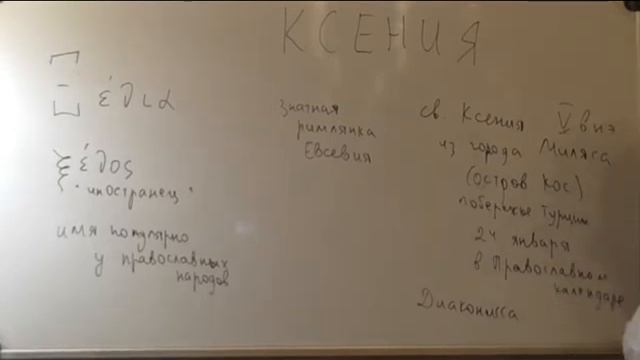 КСЕНИЯ
Ξένια
ξένος
"иностранец"
имя популярно
у православных
народов
знатная
римлянка
Евсевия
св. Ксения V в н э
из города Миляса
(остров Кос)
побережье Турции
24 января
в Православном
календаре
Диаконисса